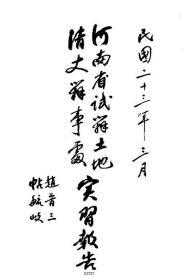 民國二十三年三月
河南省試辦土地
清丈辦事處實習報告
趙晋三
帖毓岐